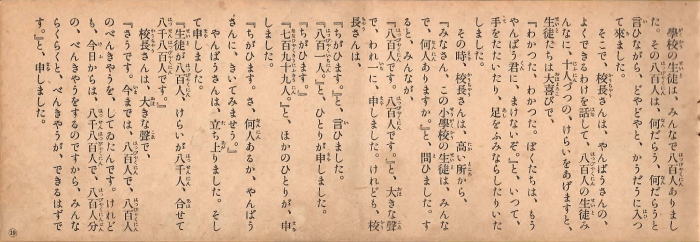 學校の生徒は、みんなで八百人ありまし
た。その八百人は、何だらう、何だらうと
言ひながら、どやどやと、かうだうに入つ
て來ました。
そこで、校長さんは、やんばうさんの、
よくできるわけを話して、八百人の生徒み
んなに、十人づつの、けらいをあげますと、
生徒たちは大喜びで、
『わかつた、わかつた。ぼくたちは、もう
やんばう君に、まけないぞ。』と、いつて、
手をたたいたり、足をふみならしたりいた
しました。
その時、校長さんは、高い所から、
『みなさん、この小學校の生徒は、みんな
で、何人ありますか。』と、問ひました。す
ると、みんなが、
『八百人です。八百人です。』と、大きな聲
で、われ〳〵に、申しました。けれども、校
長さんは、
『ちがひます。』と、言ひました。
『八百一人。』と、ひとりが申しました。
『ちがひます。』
『七百九十九人。』と、ほかのひとりが、申
しました。
『ちがひます。さ、何人あるか、やんばう
さんに、きいてみませう。』
やんばうさんは、立ち上りました。そし
て申しました。
『生徒が八百人、けらいが八千人、合せて
八千八百人です。』
校長さんは、大きな聲で、
『さうです。今までは、八百人で、八百人
のべんきやうを、してゐたんです。けれど
も、今日からは、八千八百人で、八百人分
の、べんきやうをするのですから、みんな
らくらくと、べんきやうが、できるはずで
す。』と、申しました。